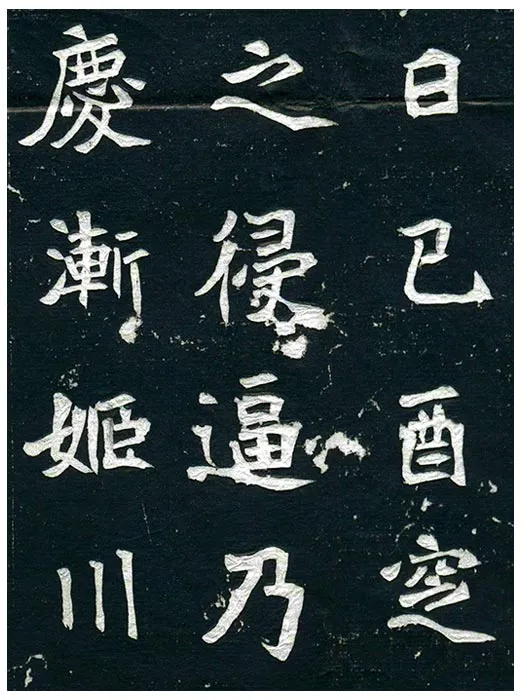 日己酉窆
之侵逼乃
慶漸姬川